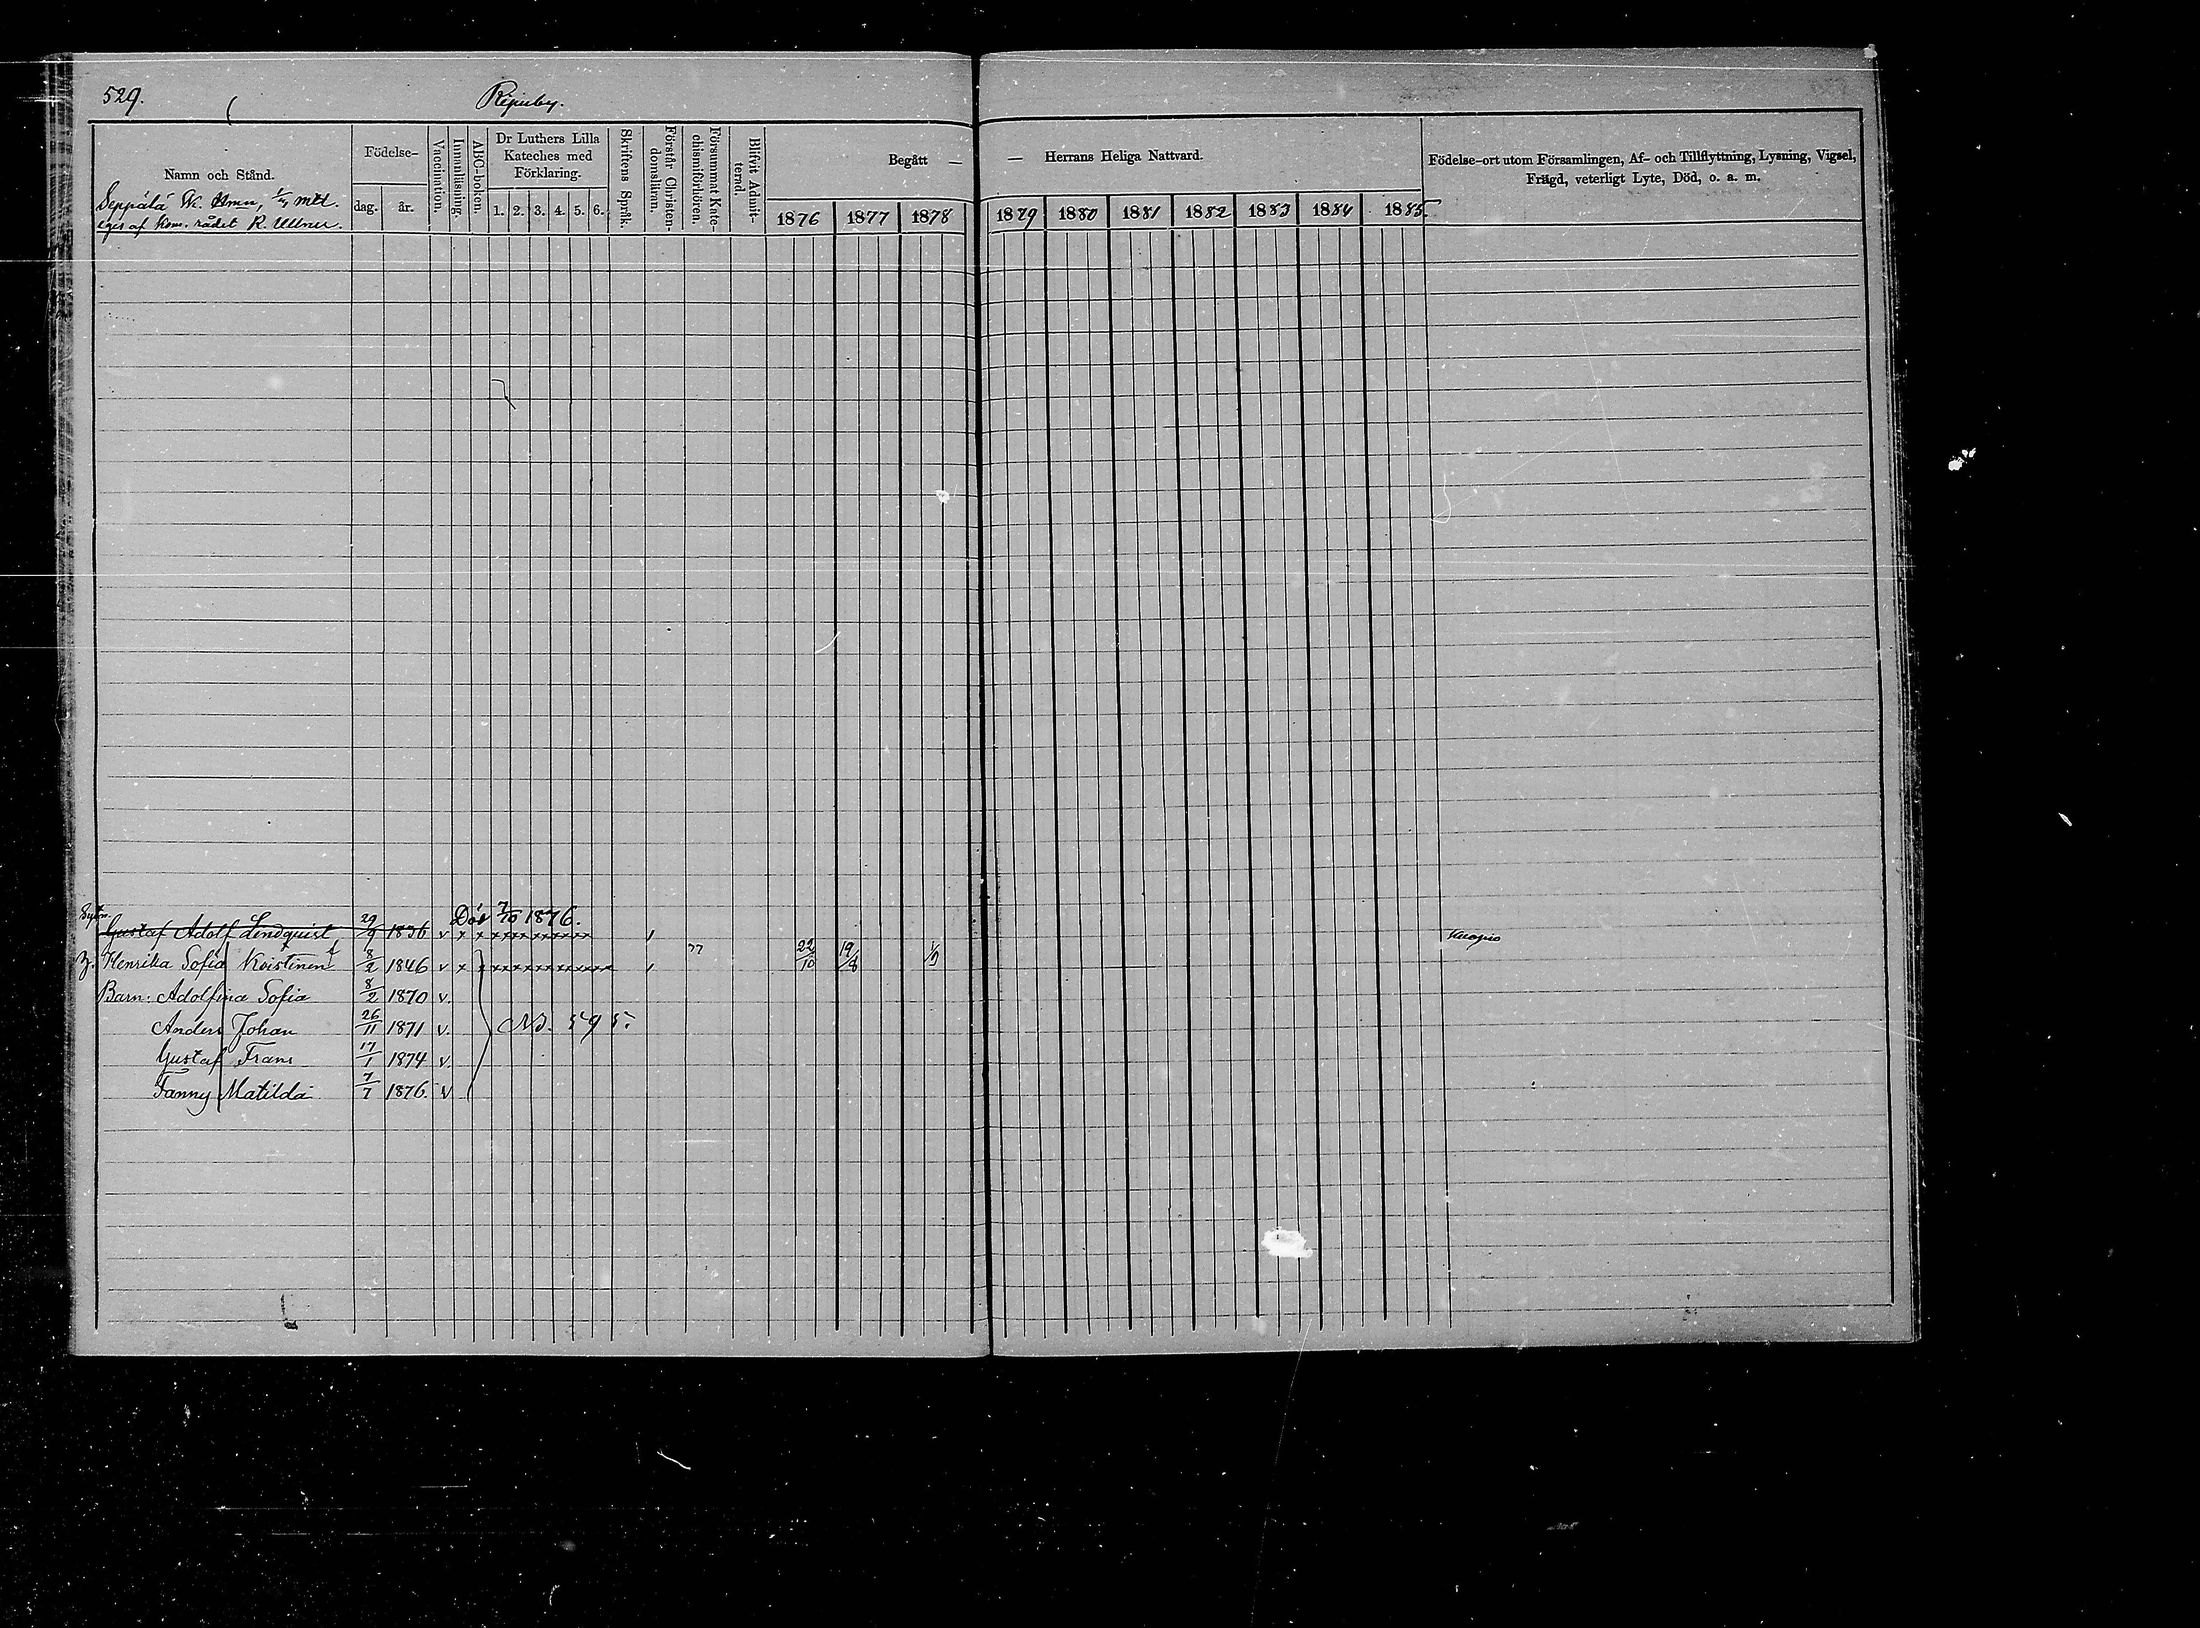 529.
Ripuby.
Namn och Stånd.
Seppälä N:o Hmn, 1/4 mtl.
eges af Kom. rådet R. Ullner.
Födelse-
dag. år.
Vaccination.
Innanläsning.
ABC-boken.
Dr Luthers Lilla
Kateches med
Förklaring.
1. 2. 3. 4. 5. 6.
Skriftens Språk.
Förstår Christen-
domsläran.
Försummat Kate-
chismiförhören.
Blifvit Admit-
terad.
Begått — — Herrans Heliga Nattvard.
1876 1877 1878 1879 1880 1881 1882 1883 1884 1885.
Födelse-ort utom Församlingen, Af- och Tillflyttning, Lysning, Vigsel,
Frägd, veterligt Lyte, Död, o. a. m.
Död 7/10 1876.
Gustaf Adolf Lindquist 29/9 1836 v x x xxxxxxxxxxx Kuopio
Henrika Sofia Koistinen 8/2 1846 v x x xxxxxxxxxxxx 77 22/10 19/8 1/9
Barn: Adolfina Sofia 8/2 1870 v.
Anders Johan 26/11 1871 v. No. 595.
Gustaf Frans 17/1 1874 v.
Fanny Matilda 7/7 1876. v